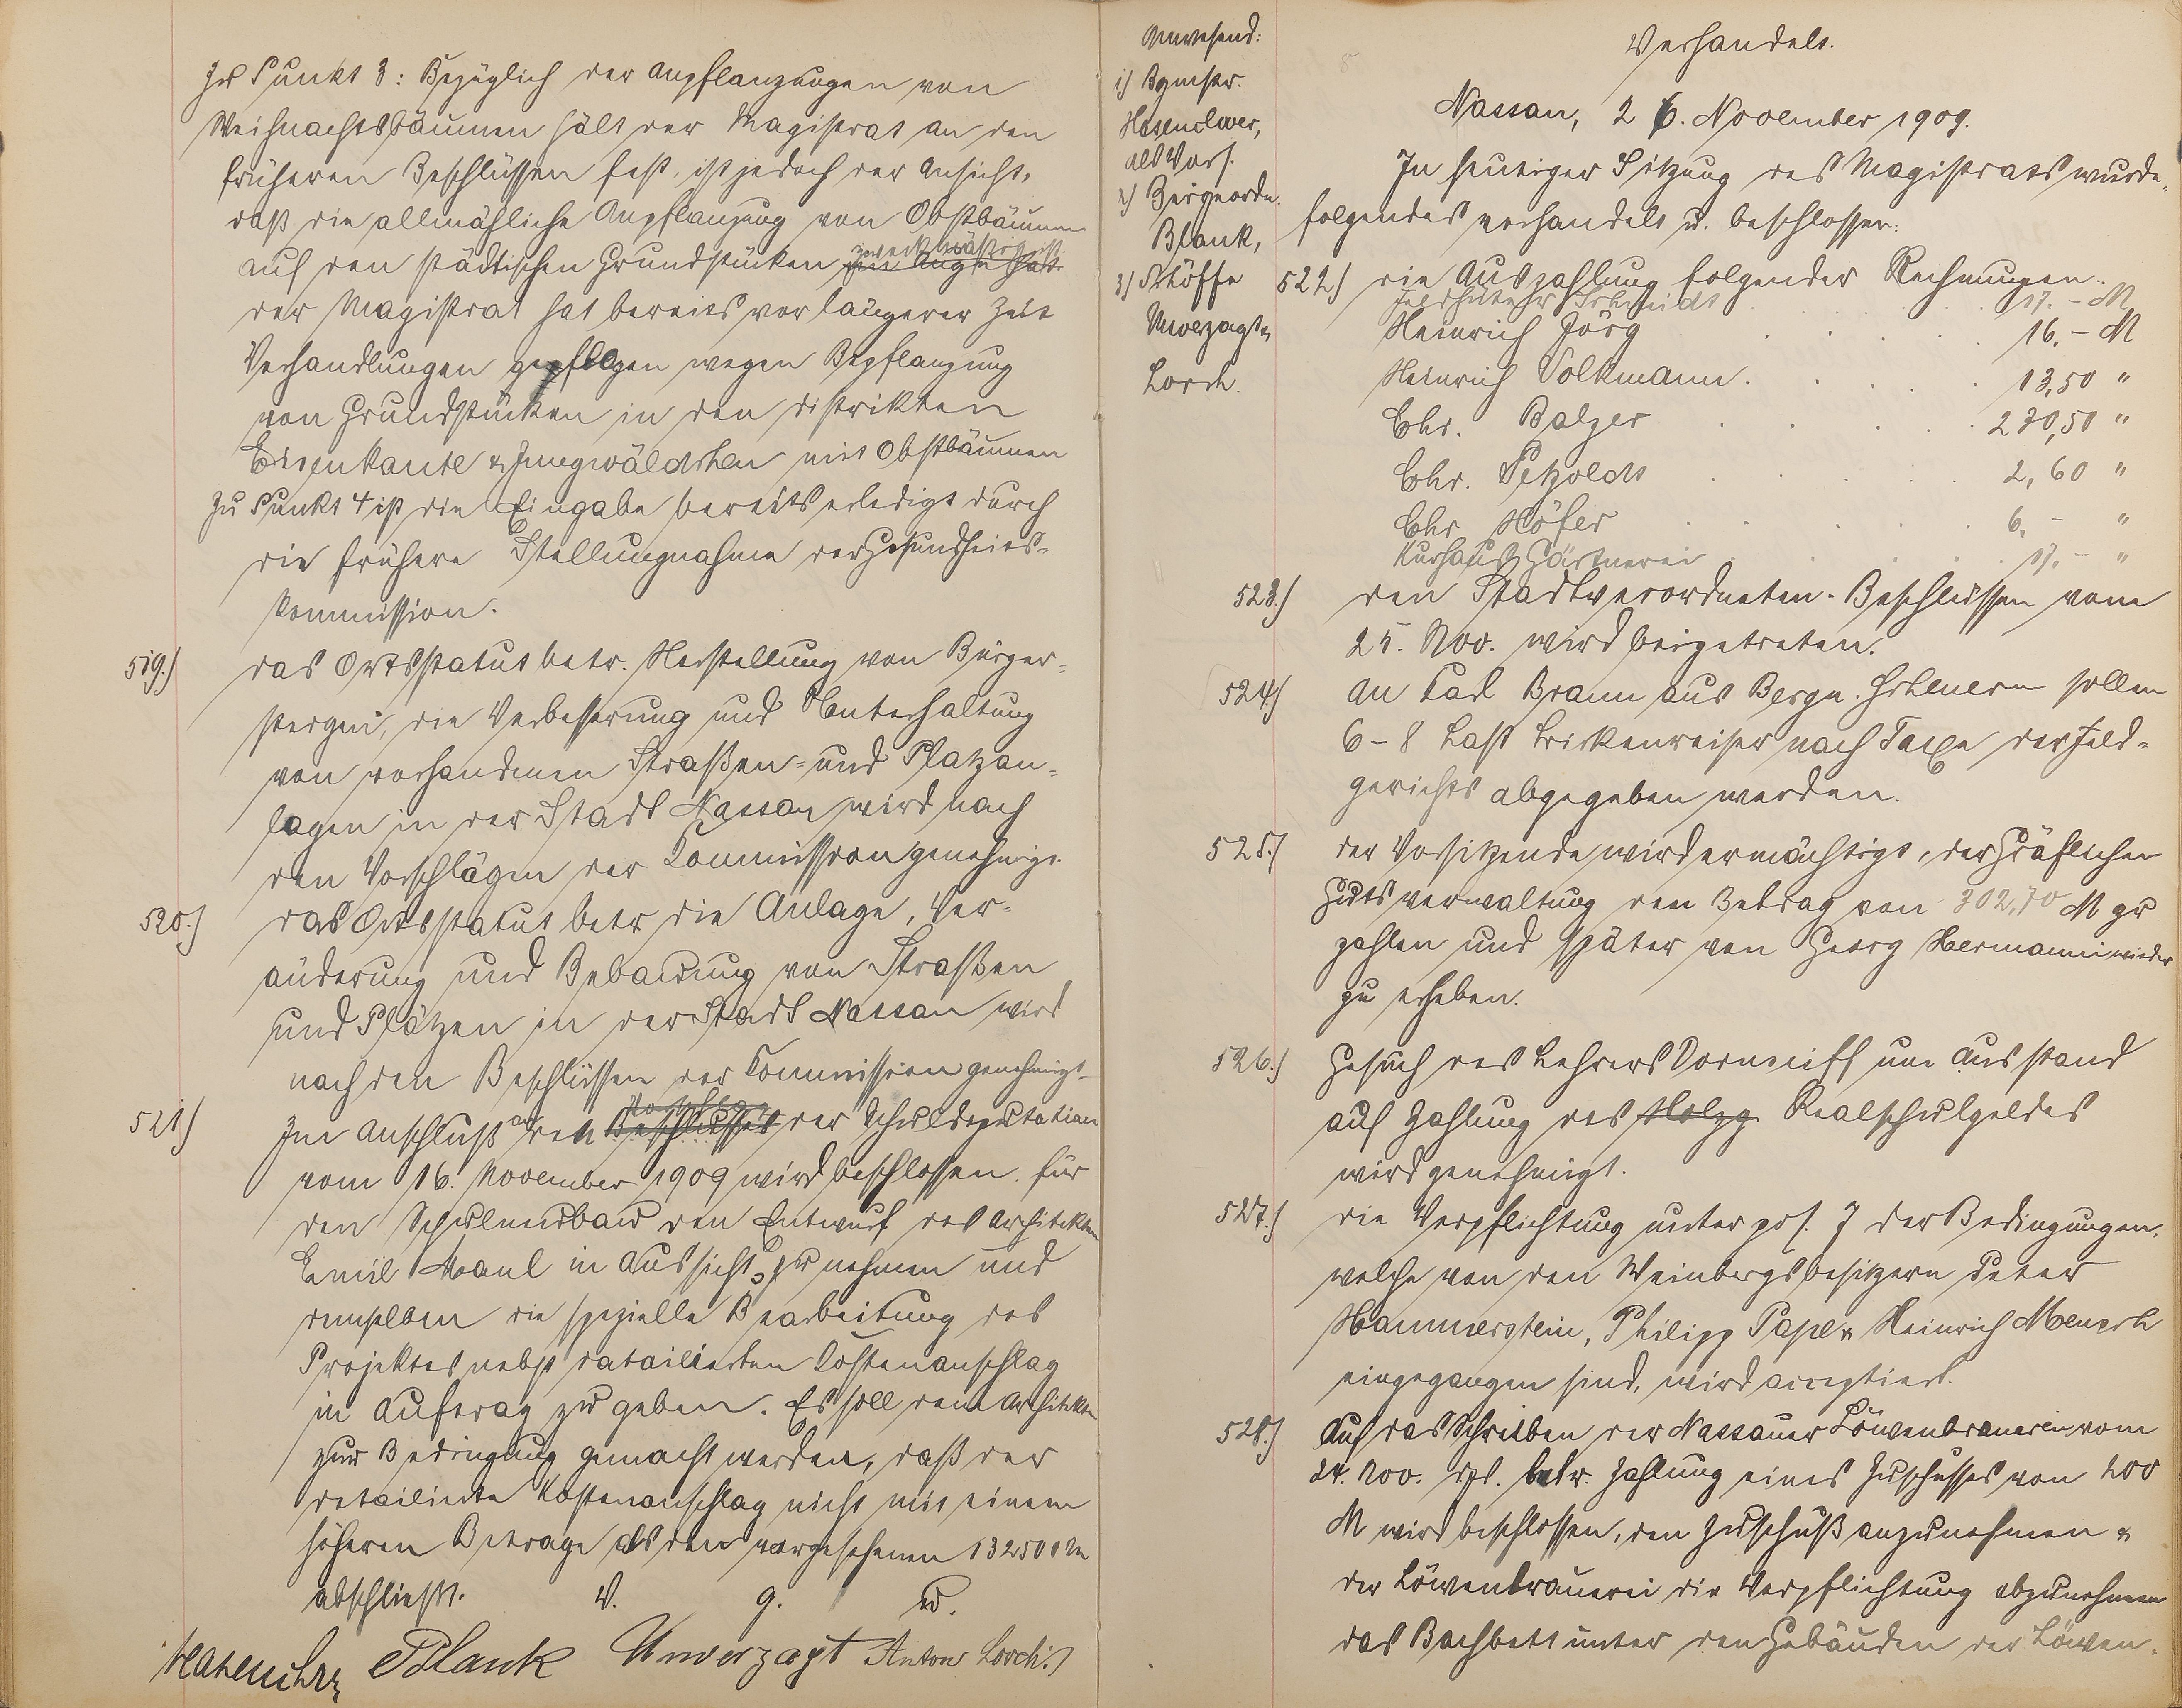 Zu Punkt 3: Bezüglich der Anpflanzungen von
Weihnachtsbäumen hält der Magistrat an den
früheren Beschlüssen fest, ist jedoch der Ansicht,
daß die allmähliche Anpflanzung von Obstbäumen
zweckmäßig ist.
auf den städtischen Grundstücken im Auge hat
der Magistrat hat bereits vor längerer Zeit
Verhandlungen gepflogen wegen Bepflanzung
von Grundstücken in den Distrikten
Eisenkaute u. Jungwäldchen mit Obstbäumen
Zu Punkt 4 ist die Eingabe bereits erledigt durch
die frühere Stellungnahme der Gesundheits-
kommission.
519.) das Ortsstatut betr. Herstellung von Bürger-
steigen, die Verbesserung und Unterhaltung
von vorhandenen Straßen- und Platzan-
lagen in der Stadt Nassau wird nach
den Vorschlägen der Commission genehmigt.
520.) das Ortsstatut betr die Anlage, Ver-
änderung und Bebauung von Straßen
und Plätzen in der Stadt Nassau wird
nach den Beschlüssen der Commission genehmigt.
521) Im Anschluß an den Beschlusses der Schuldeputation
vom 16. November 1909 wird beschlossen, für
den Schulneubau den Entwurf des Architekten
Emil Maul in Aussicht zu nehmen und
demselben die spezielle Bearbeitung des
Projektes nebst detailierten Kostenanschlag
in Auftrag zu geben. Es soll dem Architekten
zur Bedingung gemacht werden, daß der
detailierte Kostenanschlag nicht mit einem
höheren Betrage als den vorgesehenen 132500 M
abschließt. V. g. u.
Hasenclever Blank Unverzagt Anton Lorch.
Anwesend:
1) Bgmstr.
Hasenclever,
als Vors.
2) Beigeordn.
Blank,
3) Schöffe
Unverzagt u.
Lorch.
Verhandelt.
Nassau, 26. November 1909.
In heutiger Sitzung des Magistrats wurde
folgendes verhandelt u. beschlossen:
522.) die Auszahlung folgender Rechnungen:
Feldhüter Schmidt 17.- M
Heinrich Jörg 16.- M
Heinrich Volkmann. 13,50 "
Chr. Balzer 230,50 "
Chr. Petzoldt 2,60 "
Chr Höfer 6.- "
Kurhaus Gärtnerei "
523.) den Stadtverordneten-Beschlüssen vom
25. Nov. wird beigetreten.
524.) An Carl Bramm aus Bergn. Scheuern sollen
6-8 Last Birkenreiser nach Taxe des Feld-
gerichts abgegeben werden.
525.) der Vorsitzende wird ermächtigt, der Gräflichen
Gutsverwaltung den Betrag von 302,70 M zu
zahlen und später von Georg Hermanni wieder
zu erheben.
526.) Gesuch des Lehrers Dornseiff um Ausstand
auf Zahlung des Holzg Realschulgeldes
wird genehmigt.
527.) die Verpflichtung unter pos. 7 der Bedingungen,
welche von den Weinbergsbesitzern Peter
Hammerstein, Philipp Pape u. Heinrich Mensch
eingegangen sind, wird acceptiert.
528.) Auf das Schreiben der Nassauer Löwenbrauerei vom
24. Nov. ds. betr. Zahlung eines Zuschusses von 200
M wird beschlossen, den Zuschuß anzunehmen u
der Löwenbrauerei die Verpflichtung abzunehmen
das Bachbett unter den Gebäuden der Löwen-